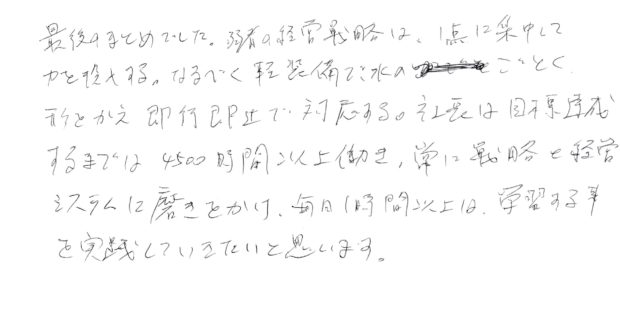 最後のまとめでした。弱者の経営戦略は、1点に集中して
力を投入する。なるべく軽装備で水の ごとく
形をかえ即行即止で対応する。社長は目標達成
するまでは4500時間以上働き、常に戦略と経営
システムに磨きをかけ、毎日1時間以上は、学習する事
を実践していきたいと思います。